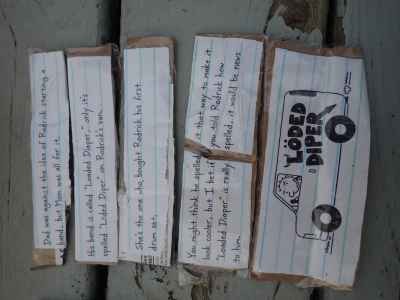 Dad was against the idea of Rodrick starting a
band, but Mom was all for it.
his band is called "Loaded Diaper," only it's
spelled "Löded Diper" on Rodrick's van.
She's the one who bought Rodrick his first
drum set.
You might think he spelled it that way to make it
look cooler, but I bet if you told Rodrick how
"Loaded Diaper" is really spelled, it would be news
to him.
LÖDED
DIPER